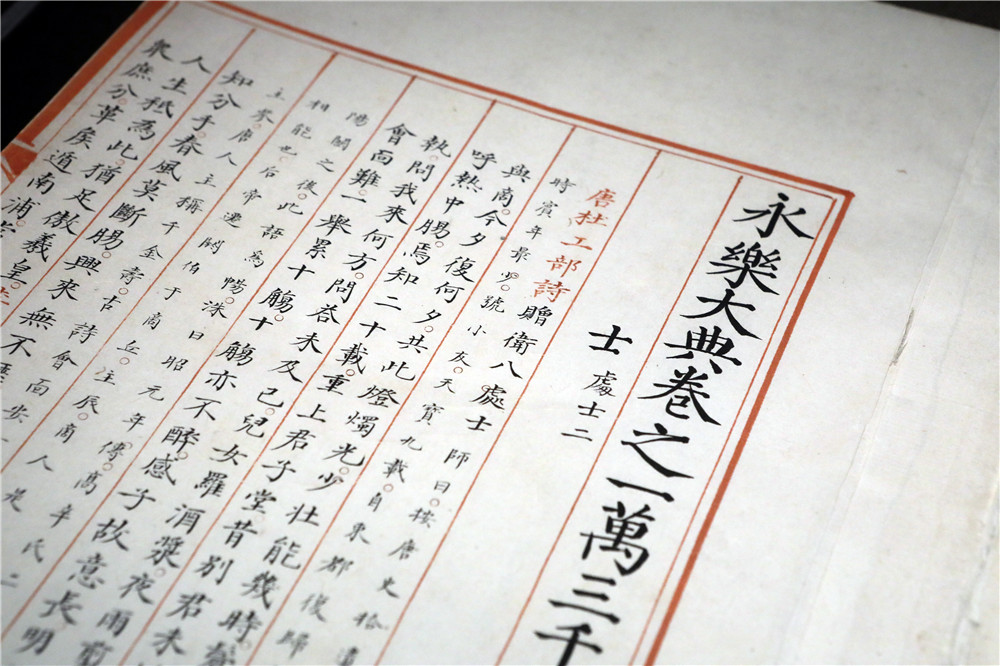 永樂大典卷之一萬三千
士 處士二
唐杜工部詩 贈衛八處士 師曰。按唐史拾遺
時賓年最少。號小友。天寶九載。自東都復歸
與商。今夕復何夕。共此燈燭光。少壯能幾時。鬢
呼熱中腸。焉知二十載。重上君子堂。昔別君未
執。問我來何方。問答未及已。兒女羅酒漿。夜雨剪
會面難。一舉累十觴。十觴亦不醉。感子故意長。明
陽關之後。此語為暢。洙曰昭元年傳。高辛氏二
相能也。后帝遷閼伯于商丘。主辰。商人是
主參。唐人 主稱千金壽。古詩會面安
知分手。春風莫斷腸。興來無不
人生秪為此。猶足傲羲皇。
眾庶分。革矣適南浦